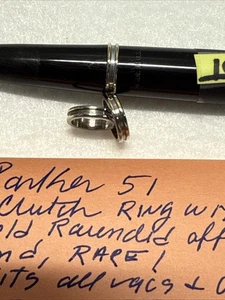 Parker 51
Clutch Ring wi
Rounded off
nd, RARE!
its all vacs +